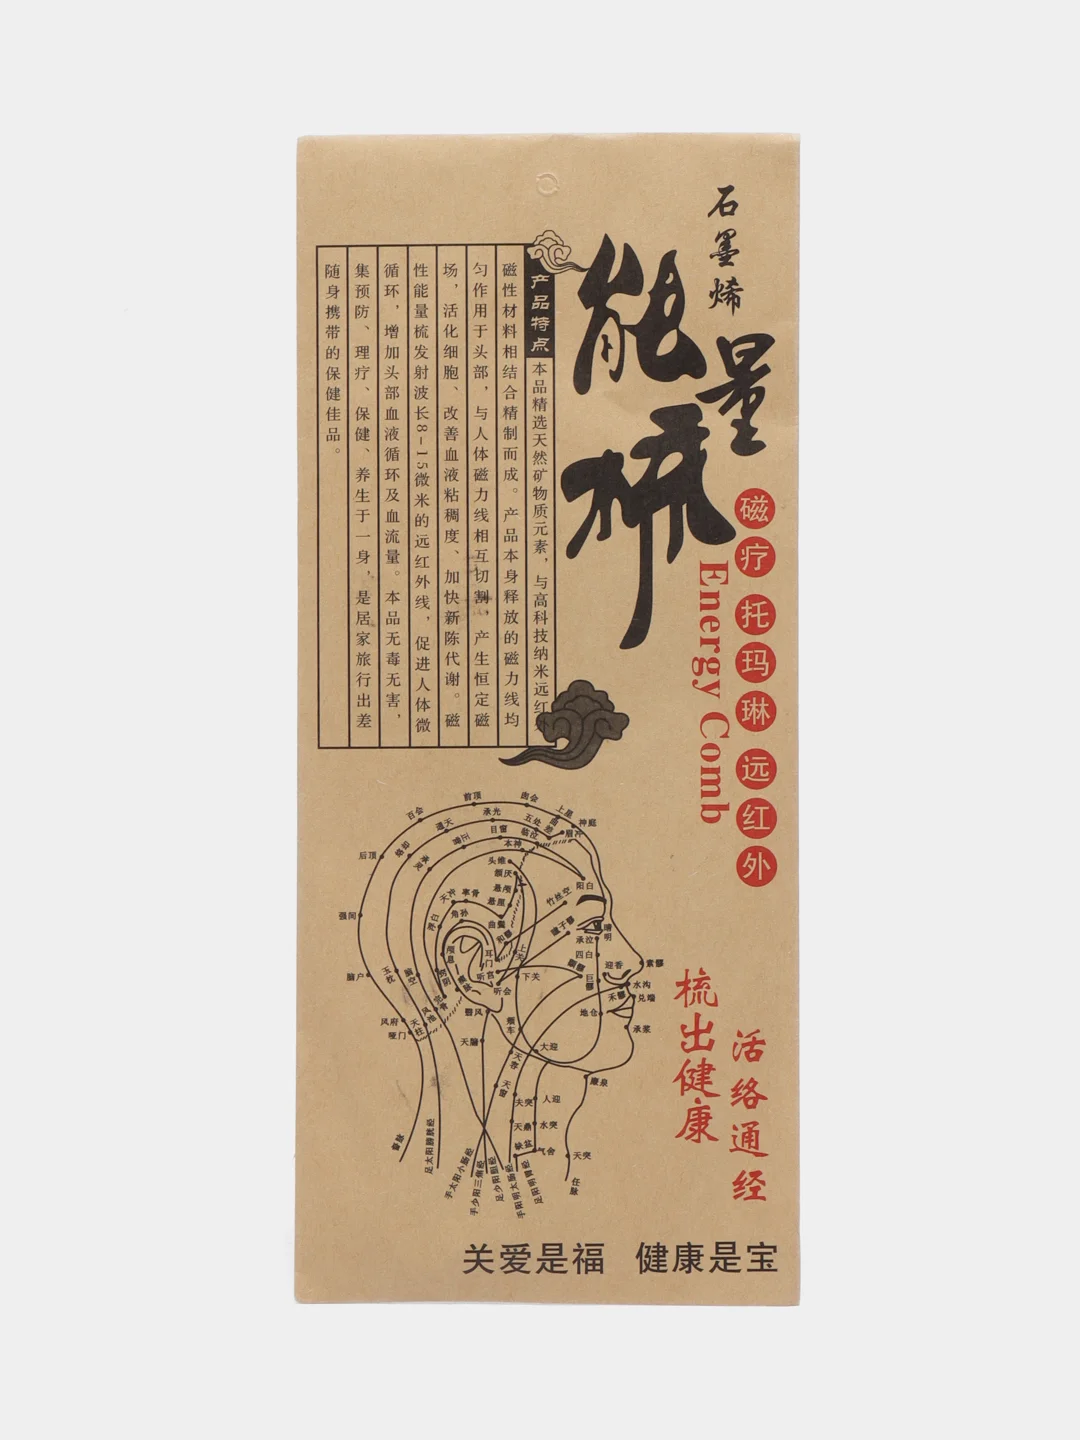 石墨烯
能量梳
磁疗 托玛琳 远红外
Energy Comb
产品特点
本品精选天然矿物质元素，与高科技纳米远红外
磁性材料相结合精制而成。产品本身释放的磁力线均
匀作用于头部，与人体磁力线相互切割，产生恒定磁
场，活化细胞、改善血液粘稠度、加快新陈代谢。磁
性能量梳发射波长8-15微米的远红外线，促进人体微
循环，增加头部血液循环及血流量。本品无毒无害，
集预防、理疗、保健、养生于一身，是居家旅行出差
随身携带的保健佳品。
前顶
囟会
上星
神庭
百会
承光
五处
通天
目窗
临泣
眉冲
后顶
本神
头维
颔厌
悬颅
悬厘
阳白
强间
角孙
曲鬓
丝竹空
浮白
和髎
睛明
承泣
四白
耳门
上关
迎香
素髎
脑户
玉枕
脑空
听宫
下关
巨髎
水沟
听会
禾髎
兑端
地仓
风府
哑门
天柱
风池
翳风
颊车
承浆
天牖
大迎
天容
廉泉
天窗
扶突
人迎
天鼎
水突
气舍
天突
督脉
足太阳膀胱经
手太阳小肠经
手少阳三焦经
足少阳胆经
手阳明大肠经
足阳明胃经
梳出健康
活络通经
关爱是福 健康是宝